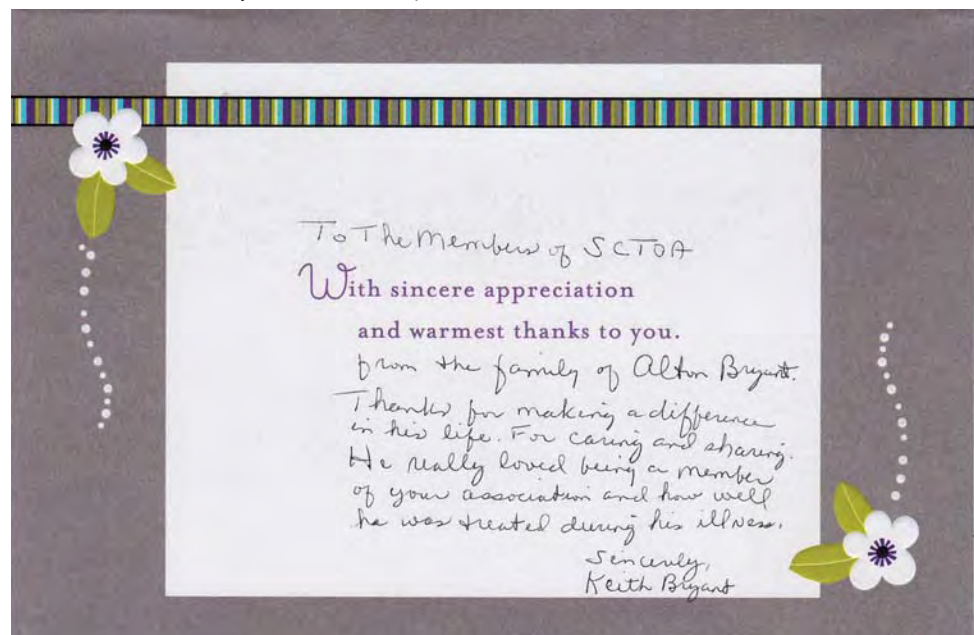 To The Members of SCTOA
With sincere appreciation
and warmest thanks to you.
from the family of Alton Bryant.
Thanks for making a difference
in his life. For caring and sharing.
He really loved being a member
of your association and how well
he was treated during his illness.
Sincerely,
Keith Bryant